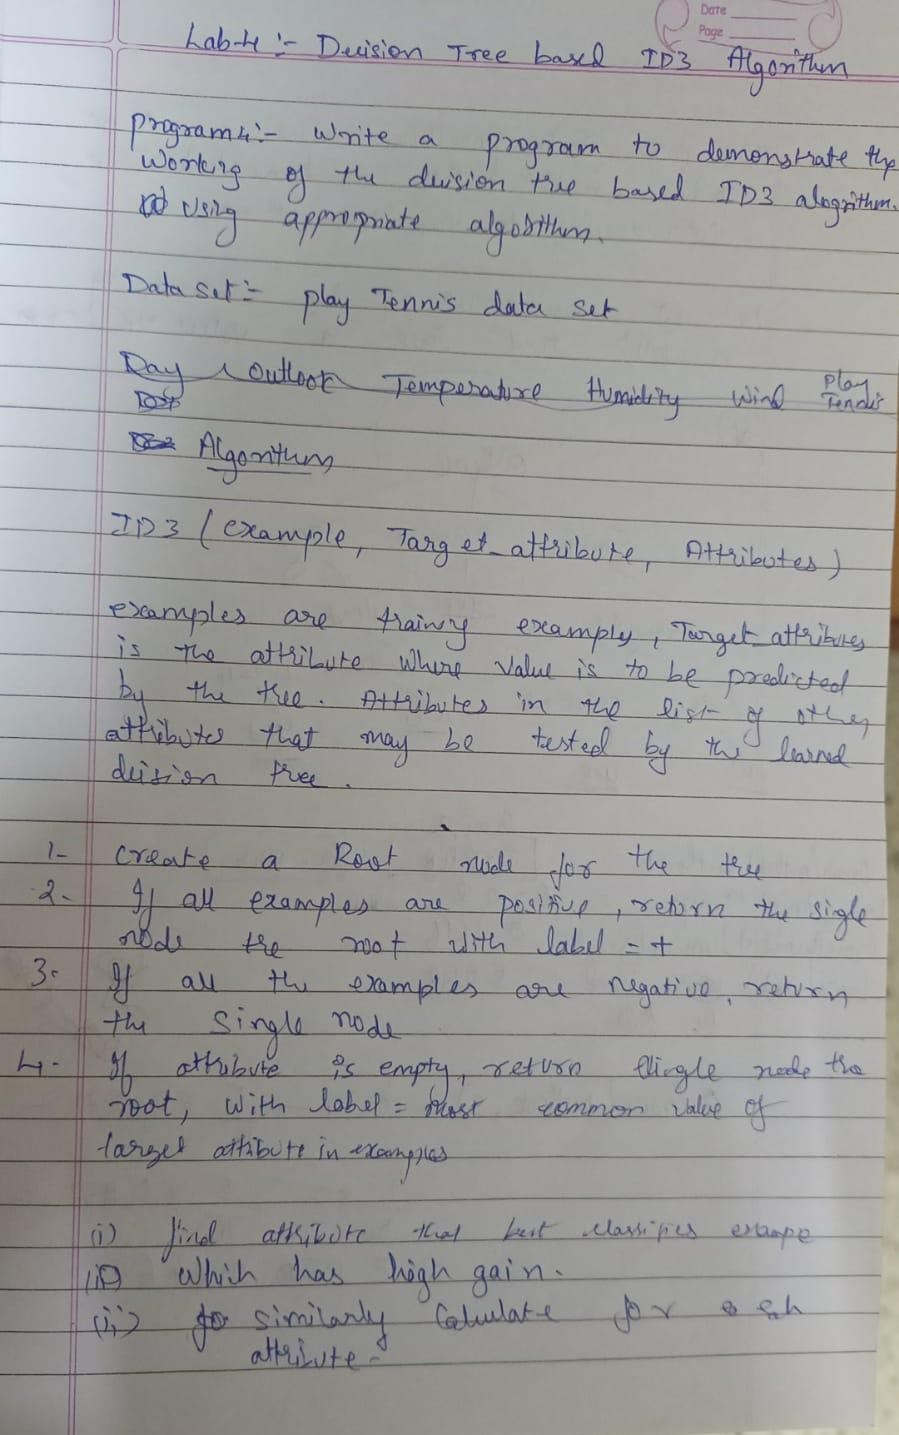 Date
Page
Lab-4 :- Decision Tree based ID3 Algorithm
program4:- Write a program to demonstrate the
working of the decision tree based ID3 alogrithm.
Using appropriate algorithm.
Data set:- play Tennis data set
Day Outlook Temperature Humidity Wind Play Tennis
Algorithm
ID3 (example, Target_attribute, Attributes)
examples are training examply, Target_attributes
is the attribute where value is to be predicted
by the tree. Attributes in the list of other
attributes that may be tested by the learned
decision tree.
1- Create a Root node for the tree
2. If all examples are positive, return the sigle
node the root with label = +
3. If all the examples are negative, return
the single node
4. If attribute is empty, return single node the
root, with label = most common value of
target attribute in examples
(i) find attribute that best classifies
(ii) Which has high gain.
(ii) similarly Calculate for each
attribute.